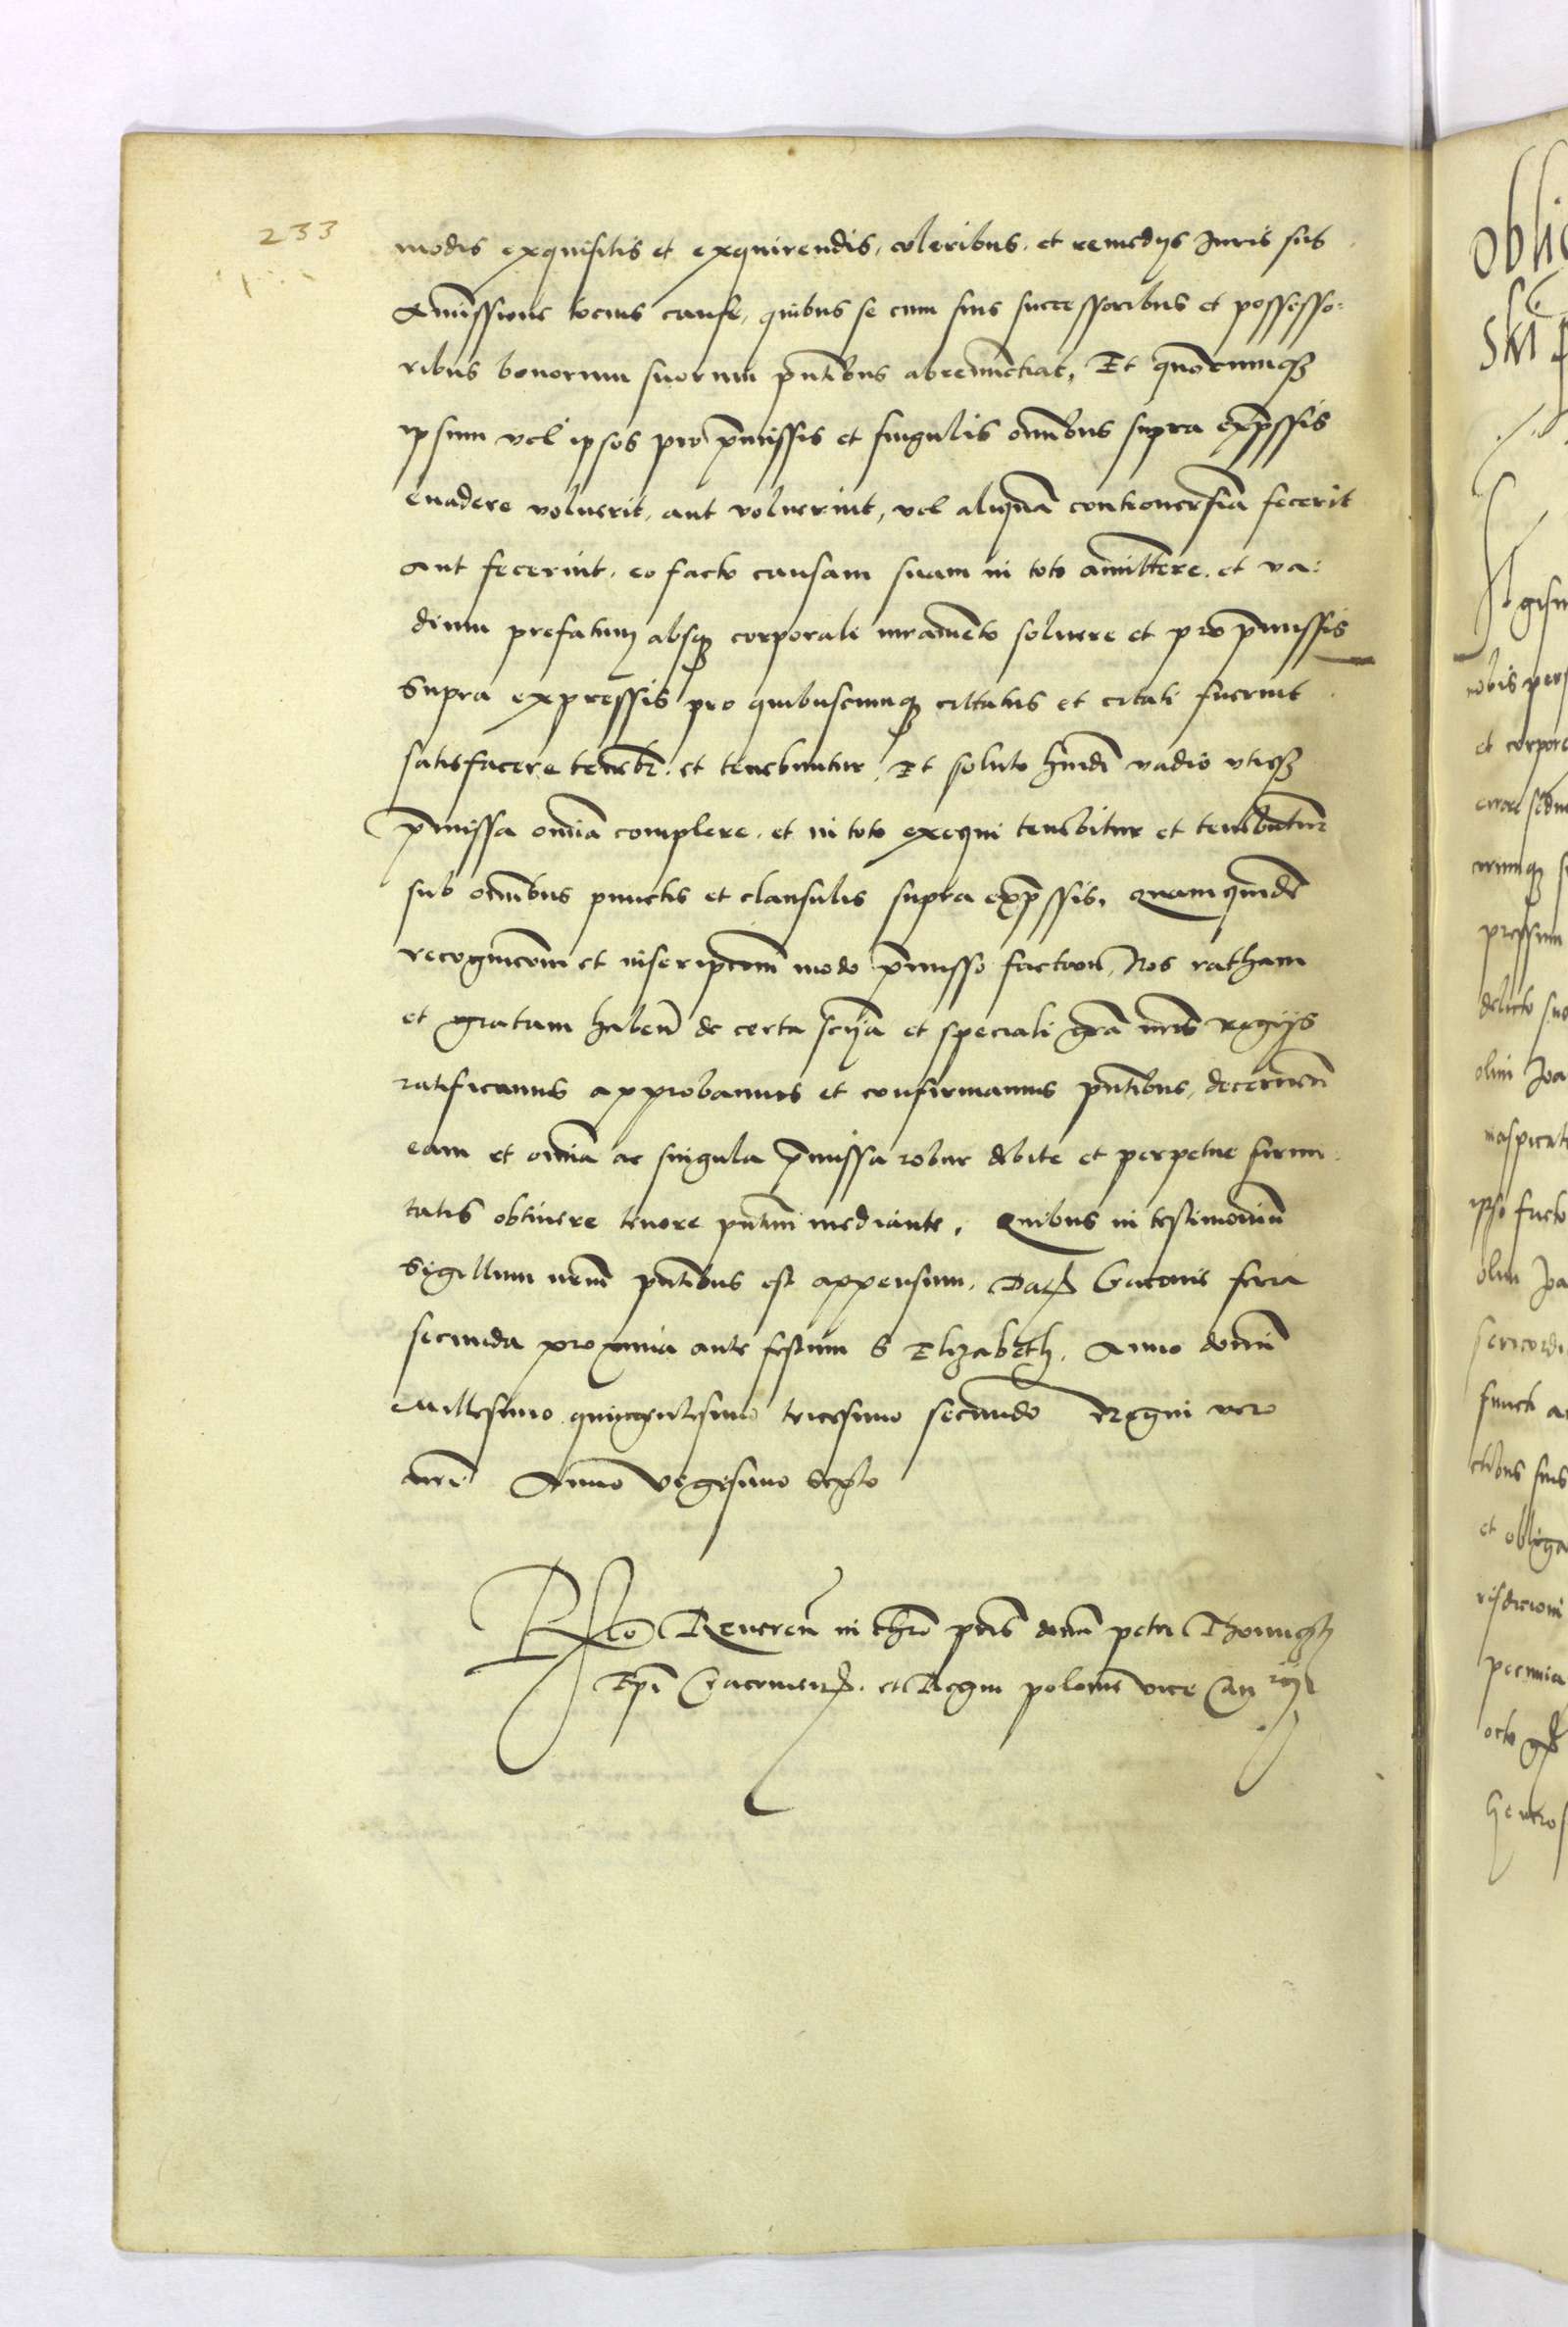 233
modis exquisitis et exquirendis, coloribus, et remedijs Juris sub
Amissione tocius cause, quibus se cum suis successoribus et possesso:
ribus bonorum suorum pntibus abrenunctiat, Et quocumcunqz
ipsum vel ipsos pro pmissis et singulis omibus supra expssis
euadere voluerit, aut voluerint, vel aliqua controuersia fecerit
aut fecerint, eo facto causam suam in toto amittere, et va:
dium prefatum absqz corporali iuramento soluere et pro pmissis
supra expressis pro quibuscunqz cittatus et citati fuerint
satisfacere tenebr, et tenebuntur, Et soluto hmdi vadio vtiqz
pmissa omia complere, et in toto exequi tenebitur et tenebuntur
sub omibus punctis et clausulis supra expssis, Quamquidē
recognicoem et inscripcoem modo pmisso factam, Nos ratham
et gratam haben de certa scija et speciali gra nris regijs
ratificamus approbamus et confirmamus pntibus, decernen
eam et omia ac singula pmissa robur debite et perpetue firmi
tatis obtinere tenore pntium mediante, Quibus in testimoniu
sigillum nrum pntibus est appensum, Dat Gracouie feria
secunda proxima ante festum S Elizabeth, Anno domini
Millesimo quingentesimo tricesimo secundo Regni vero
nri Anno vigesimo sexto
Rlo Reueren in chro pris domi petri Thomigky
Epi Cracouien, et Regni polonie vice Canrij
Oblig
ski p
gism
nobis pers
et corpore
errore sedm
cumqz s
pressum
delicto suo
olim Joa
ipso facto
olim Joa
sericordi
functi a
et obliga
risdicioni
pecunia
octo
Generos